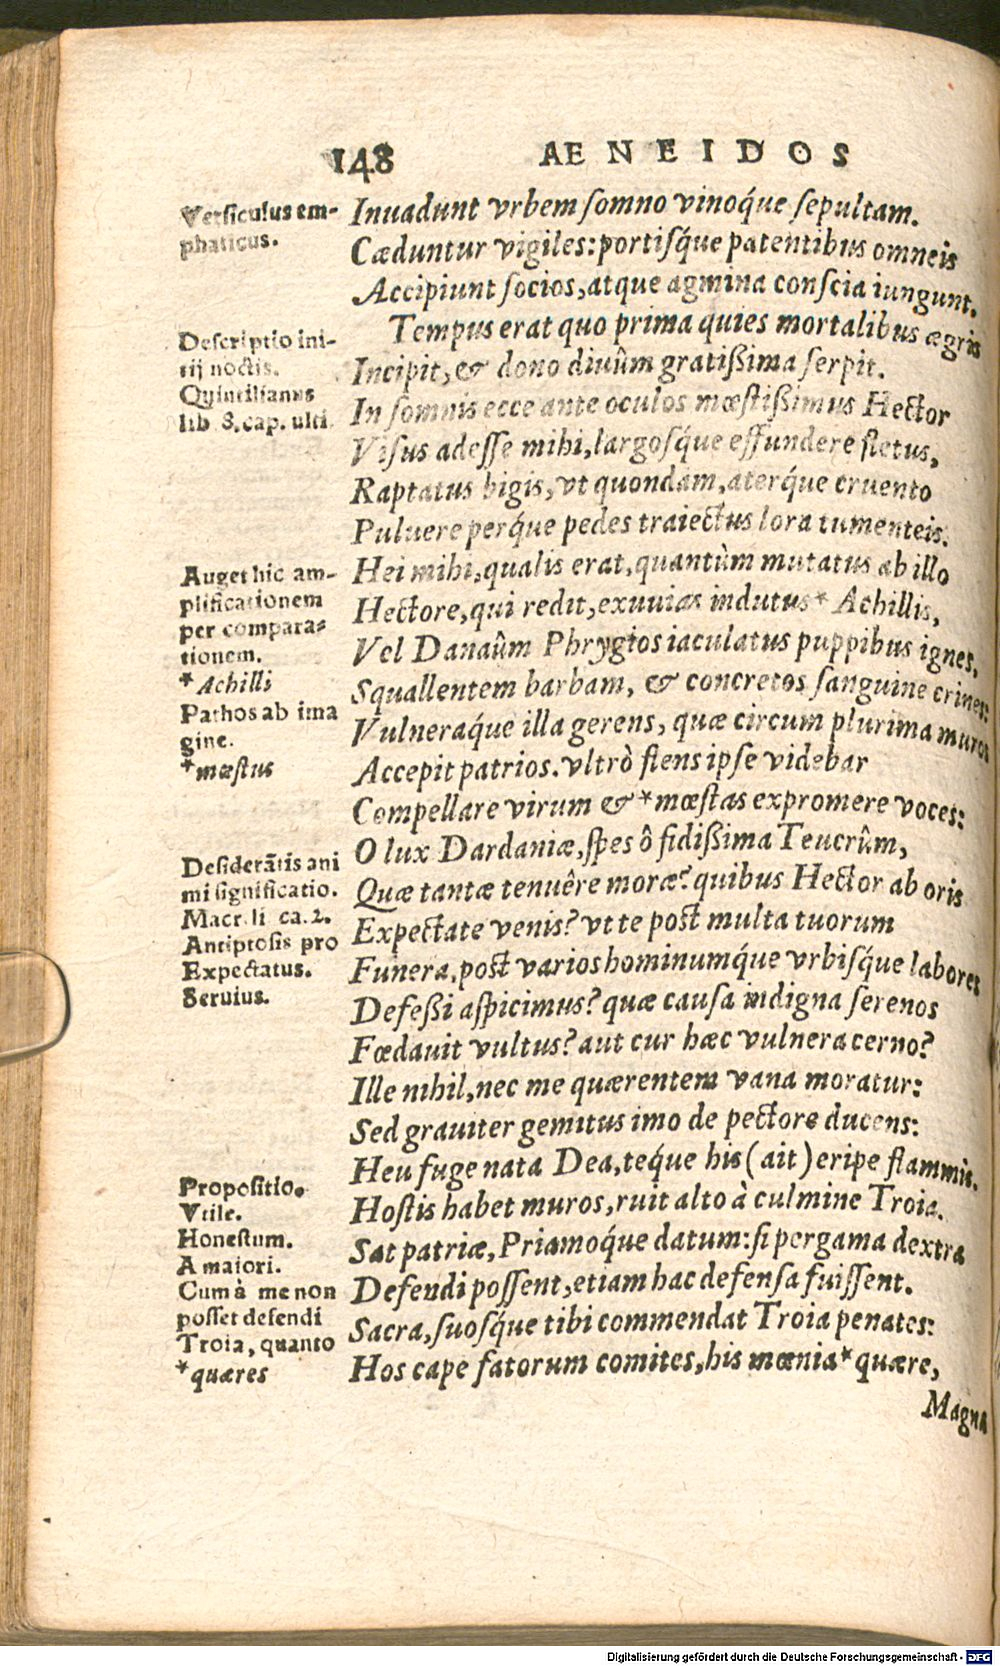 148 AENEIDOS
Versiculus em-
phaticus.
Inuadunt vrbem somno vinoq́ue sepultam.
Cæduntur vigiles: portisq́ue patentibus omneis
Accipiunt socios, atque agmina conscia iungunt.
Descriptio ini-
tij noctis.
Quintilianus
lib 8. cap. ulti
Tempus erat quo prima quies mortalibus ægris
Incipit, & dono diuûm gratißima serpit.
In somnis ecce ante oculos mœstißimus Hector
Visus adesse mihi, largosq́ue effundere fletus,
Raptatus bigis, vt quondam, aterq́ue cruento
Puluere perq́ue pedes traiectus lora tumenteis.
Auget hic am-
plificationem
per compara-
tionem.
* Achilli
Pathos ab ima
gine.
* mœstus
Hei mihi, qualis erat, quantùm mutatus ab illo
Hectore, qui redit, exuuias indutus* Achillis,
Vel Danaûm Phrygios iaculatus puppibus ignes,
Squallentem barbam, & concretos sanguine crines:
Vulneraq́ue illa gerens, quæ circum plurima muros
Accepit patrios. vltrò flens ipse videbar
Compellare virum & *mœstas expromere voces:
Desiderātis ani
mi significatio.
Macr. li ca. 2.
Antiptosis pro
Expectatus.
Seruius.
O lux Dardaniæ, spes ô fidißima Teucrûm,
Quæ tantæ tenuêre moræ? quibus Hector ab oris
Expectate venis? vt te post multa tuorum
Funera, post varios hominumq́ue vrbisq́ue labores
Defeßi aspicimus? quæ causa indigna serenos
Fœdauit vultus? aut cur hæc vulnera cerno?
Ille nihil, nec me quærentem vana moratur:
Sed grauiter gemitus imo de pectore ducens:
Heu fuge nata Dea, teq́ue his (ait) eripe flammis.
Propositio.
Vtile.
Honestum.
A maiori.
Cum à me non
posset defendi
Troia, quanto
* quæres
Hostis habet muros, ruit alto à culmine Troia.
Sat patriæ, Priamoq́ue datum: si pergama dextra
Defendi possent, etiam hac defensa fuissent.
Sacra, suosq́ue tibi commendat Troia penates:
Hos cape fatorum comites, his mœnia* quære,
Magna
Digitalisierung gefördert durch die Deutsche Forschungsgemeinschaft - DFG